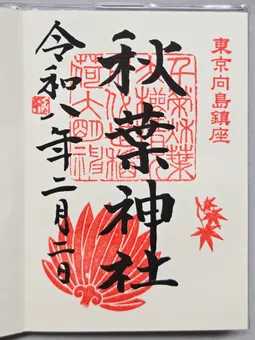 東京向島鎮座
秋葉神社
令和八年二月二日